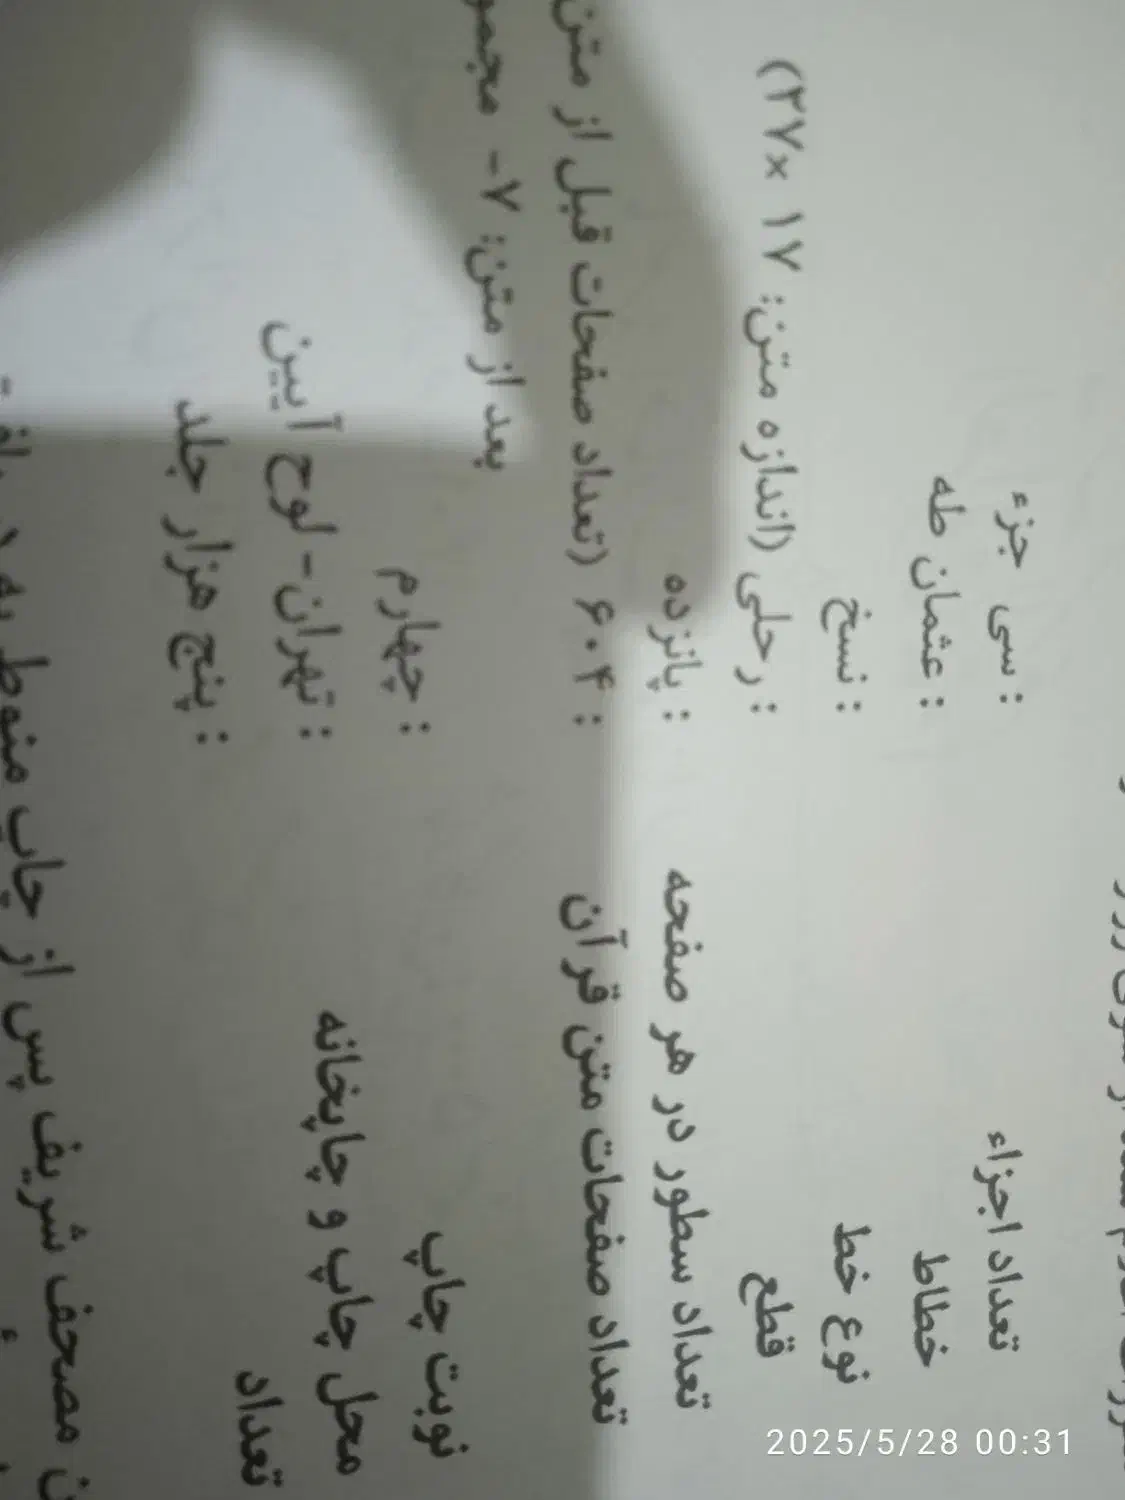 تعداد اجزاء : سی جزء
خطاط : عثمان طه
نوع خط : نسخ
قطع : رحلی (اندازه متن: ۱۷ × ۲۷)
تعداد سطور در هر صفحه : پانزده
تعداد صفحات متن قرآن : ۶۰۴ (تعداد صفحات قبل از متن
بعد از متن: ۷-
نوبت چاپ : چهارم
محل چاپ و چاپخانه : تهران - لوح آیین
تعداد : پنج هزار جلد
مصحف شریف پس از چاپ منوط به
2025/5/28 00:31